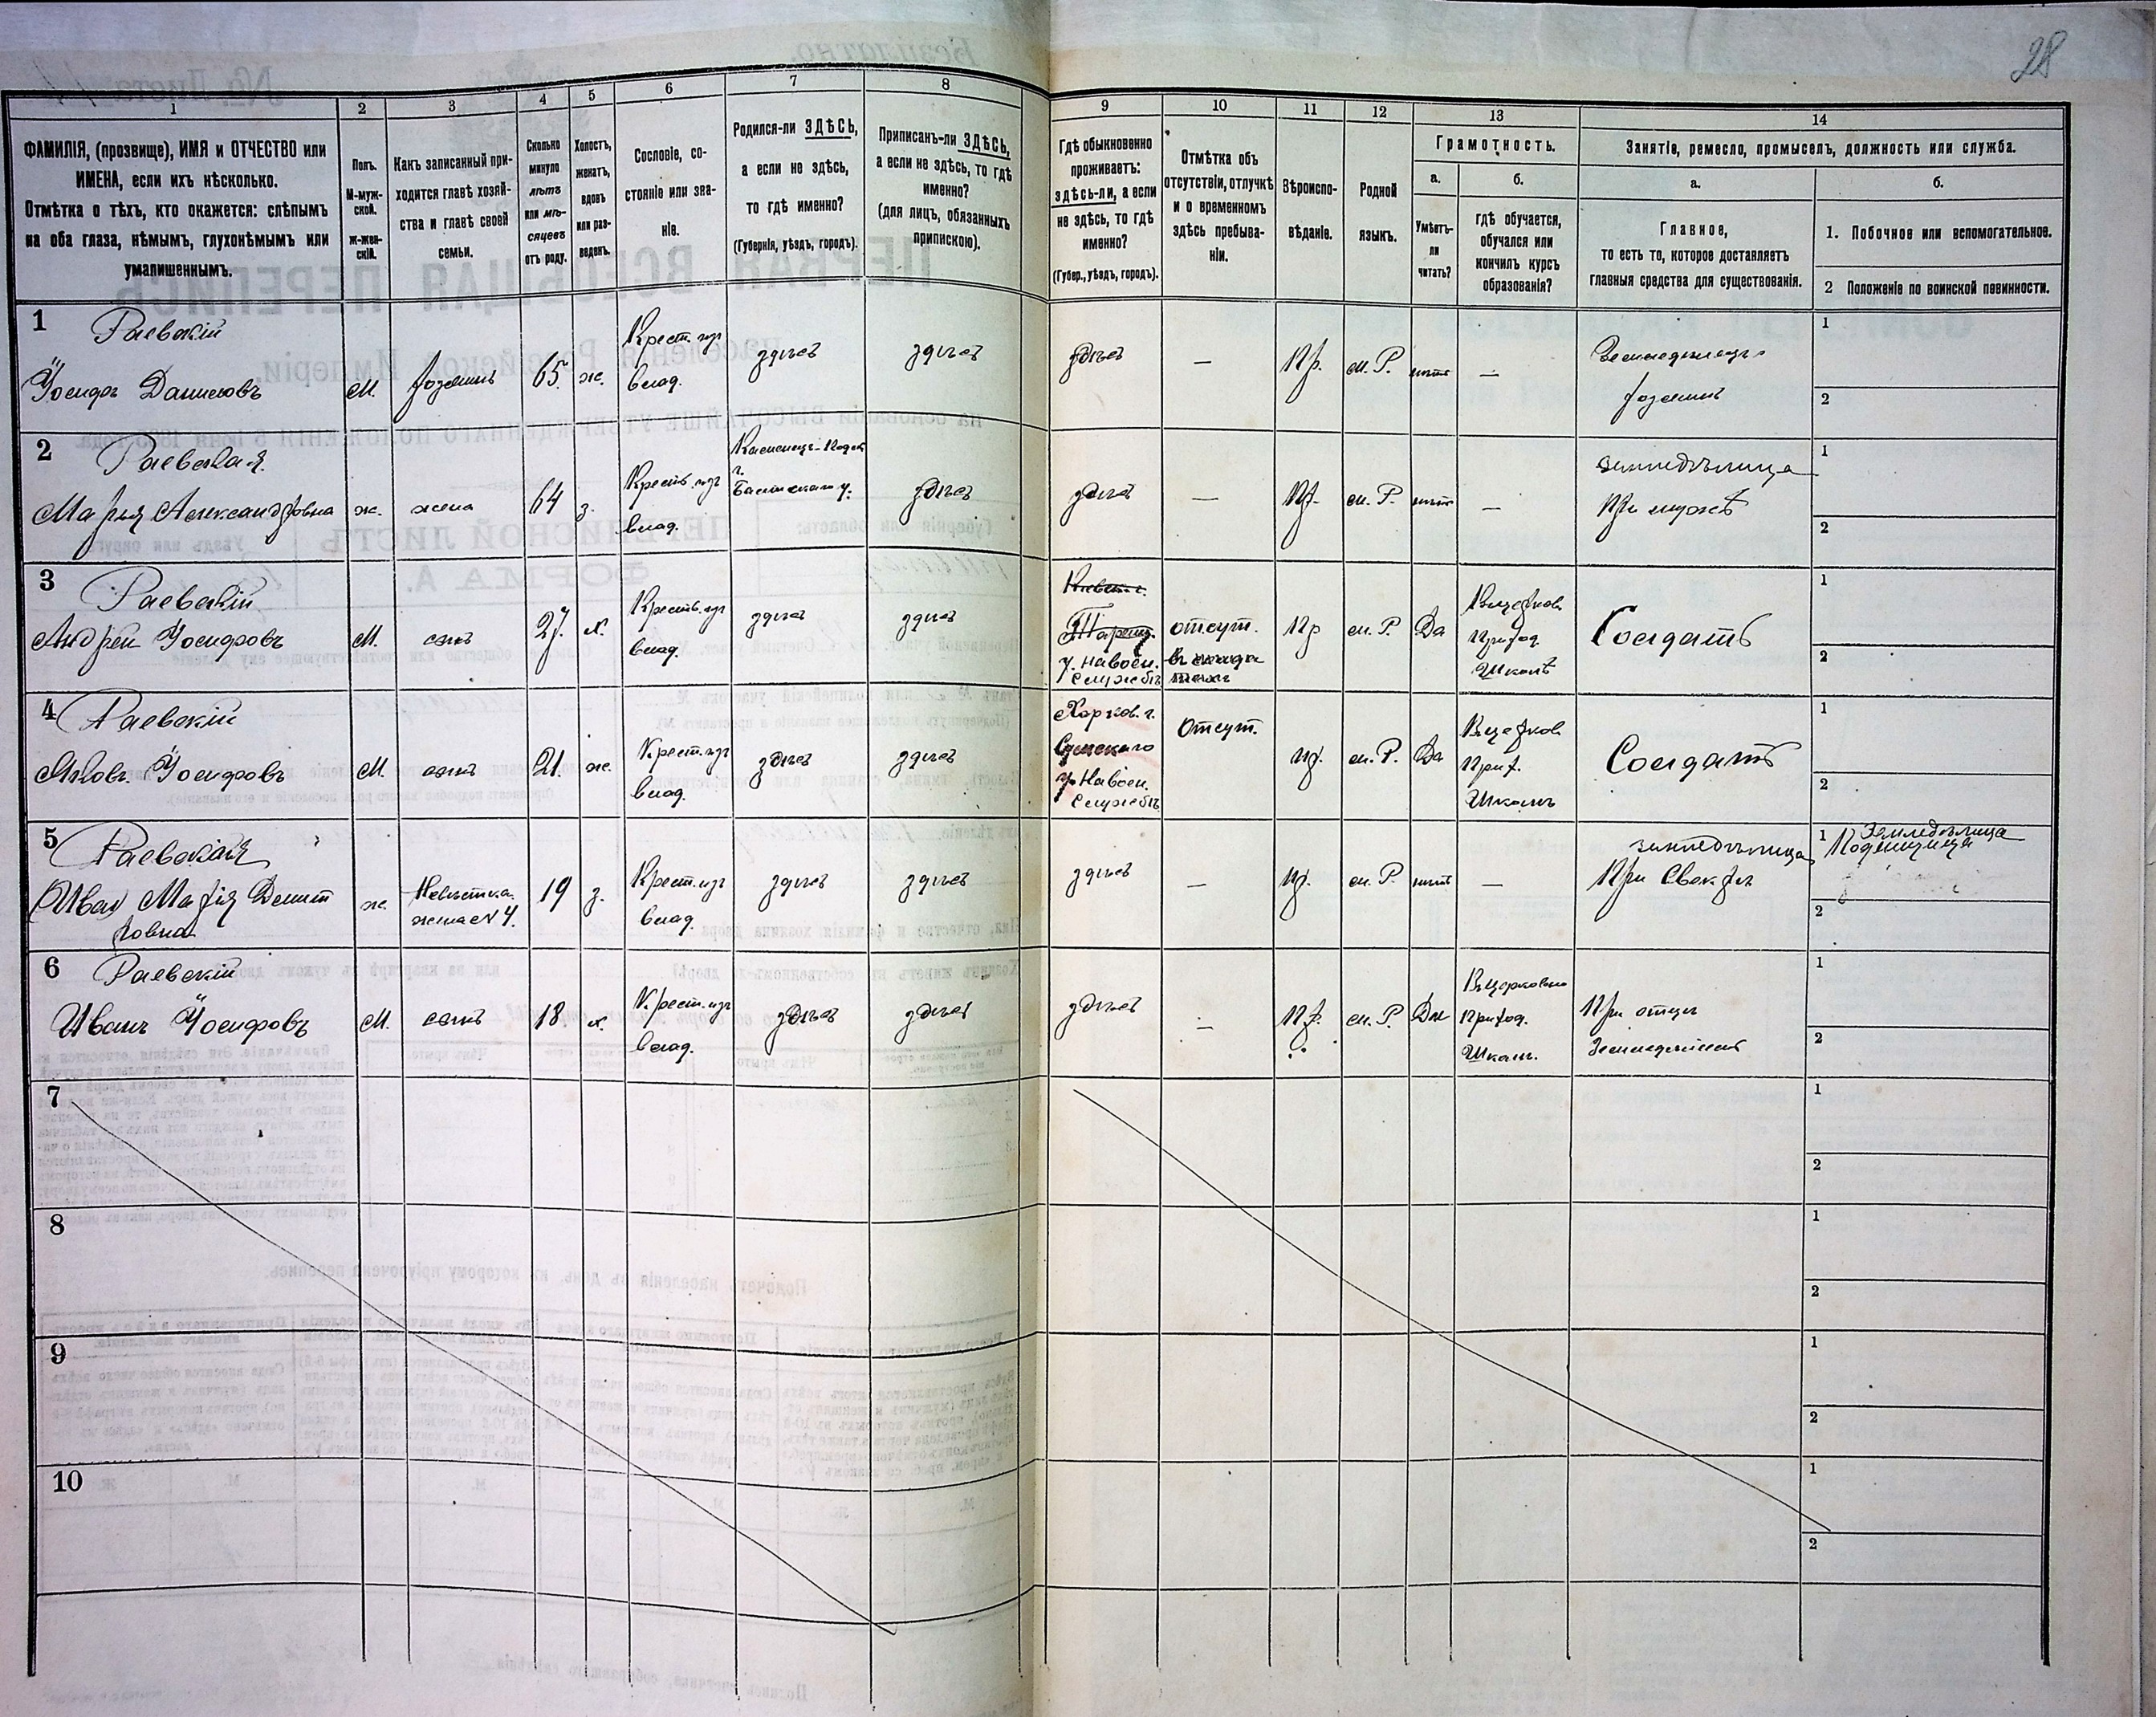 28
1 2 3 4 5 6 7 8 9 10 11 12 13 14
ФАМИЛІЯ, (прозвище), ИМЯ и ОТЧЕСТВО или
ИМЕНА, если ихъ нѣсколько.
Отмѣтка о тѣхъ, кто окажется: слѣпымъ
на оба глаза, нѣмымъ, глухонѣмымъ или
умалишеннымъ.
Полъ.
М-муж-
ской.
Ж-жен-
скій.
Какъ записанный при-
ходится главѣ хозяй-
ства и главѣ своей
семьи.
Сколько
минуло
лѣтъ
или мѣ-
сяцевъ
отъ роду.
Холостъ,
женатъ,
вдовъ
или раз-
веденъ.
Сословіе, со-
стояніе или зва-
ніе.
Родился-ли ЗДѢСЬ,
а если не здѣсь,
то гдѣ именно?
(Губернія, уѣздъ, городъ).
Приписанъ-ли ЗДѢСЬ,
а если не здѣсь, то гдѣ
именно?
(для лицъ, обязанныхъ
припискою).
Гдѣ обыкновенно
проживаетъ:
здѣсь-ли, а если
не здѣсь, то гдѣ
именно?
(Губер., уѣздъ, городъ).
Отмѣтка объ
отсутствіи, отлучкѣ
и о временномъ
здѣсь пребыва-
ніи.
Вѣроиспо-
вѣданіе.
Родной
языкъ.
Грамотность.
а.
Умѣетъ-
ли
читать?
б.
гдѣ обучается,
обучался или
кончилъ курсъ
образованія?
Занятіе, ремесло, промыселъ, должность или служба.
а.
Главное,
то есть то, которое доставляетъ
главныя средства для существованія.
б.
1. Побочное или вспомогательное.
2 Положеніе по воинской повинности.
1
Раевскій
Іосифъ Даниловъ
М.
хозяинъ
65.
ж.
Крест. изъ
влад.
здѣсь
здѣсь
здѣсь
—
Пр.
м. Р.
нѣтъ
—
Земледѣлецъ
хозяинъ
1
2
2
Раевская
Марья Александровна
ж.
жена
64
з.
Крест. изъ
влад.
Каменецъ-Подол
г.
здѣсь
здѣсь
—
Пр.
м. Р.
нѣтъ
—
земледѣлица
При мужѣ
1
2
3
Раевскій
Андрей Іосифовъ
М.
сынъ
27.
х.
Крест. изъ
влад.
здѣсь
здѣсь
Кіевск. г.
у. На воен.
Службѣ
отсут.
Пр
м. Р.
Да
В церков
приход
Школѣ
Солдатъ
1
2
4
Раевскій
Яковъ Іосифовъ
М.
сынъ
21.
ж.
Крест. изъ
влад.
здѣсь
здѣсь
Харков. г.
Сумскаго
у. На воен.
Службѣ
Отсут.
Пр.
м. Р.
Да
В церков
Прих.
Школѣ
Солдатъ
1
2
5
Раевская
Марія Демит
ровна
ж.
Невѣстка.
жена N 4.
19
з.
Крест. изъ
влад.
здѣсь
здѣсь
здѣсь
—
Пр.
м. Р.
нѣтъ
—
земледѣлица
При Свекрѣ
1 Земледѣлица
Поденщица
2
6
Раевскій
Иванъ Іосифовъ
М.
сынъ
18.
х.
Крест. изъ
влад.
здѣсь
здѣсь
здѣсь
—
Пр.
м. Р.
Да
В церковно
Приход.
Школ.
При отцѣ
Земледѣлецъ
1
2
7
1
2
8
1
2
9
1
2
10
1
2